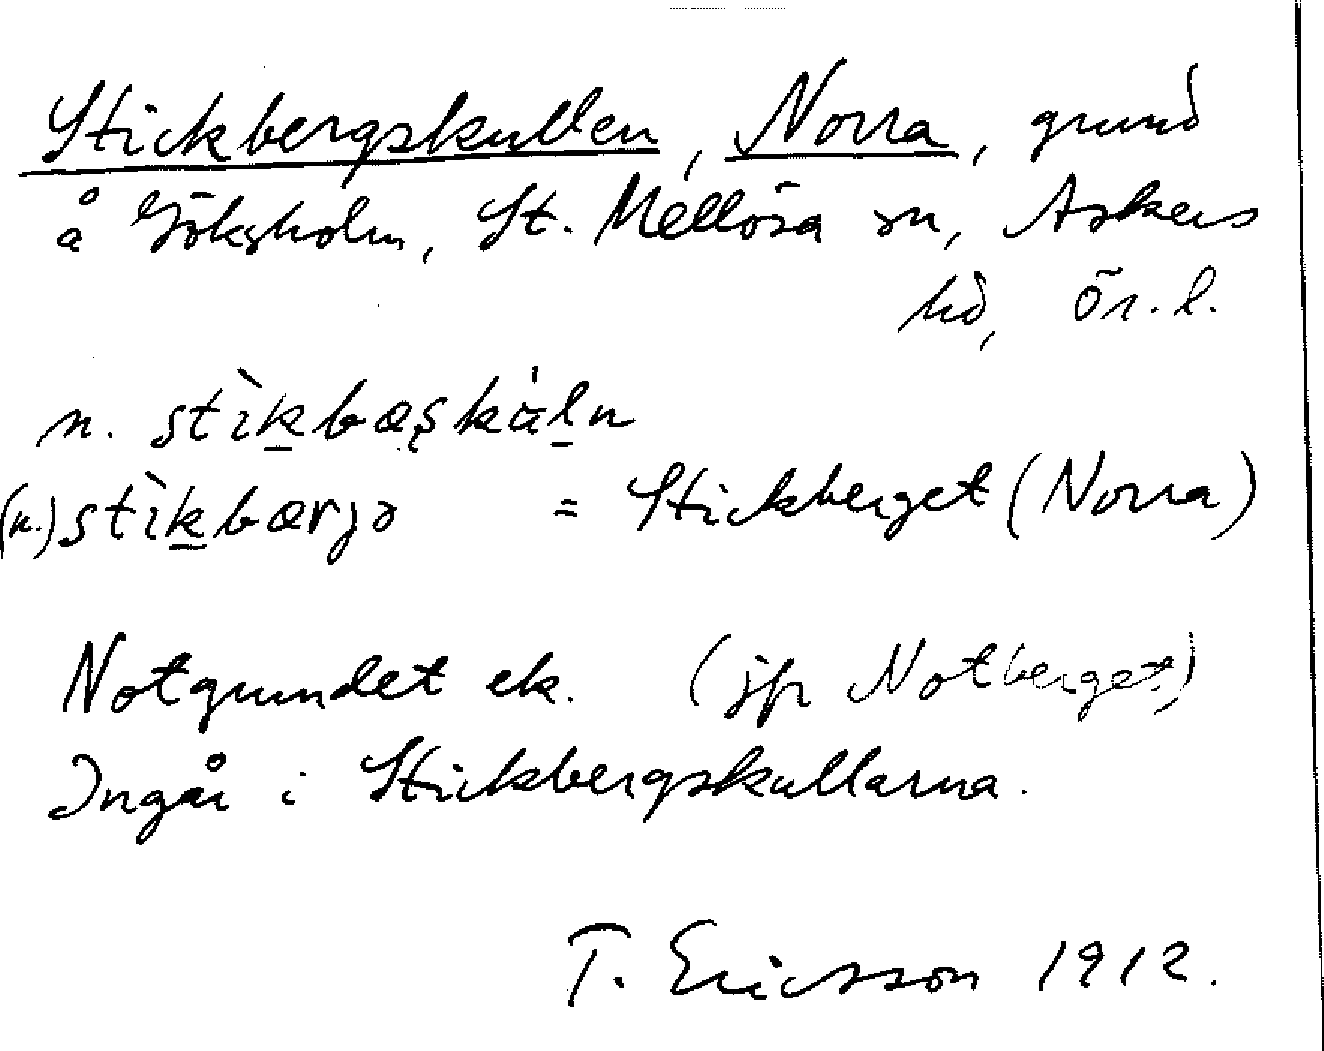 Stickbergskullen, Norra, grund
å Göksholm, St. Mellösa sn, Askers
hd, Ör. l.
n. stìkbæʂkàln
(n.) stìkbærjə = Stickberget (Norra)
Notgrundet ek. (jfr Notberget)
Ingår i Stickbergskullarna.
T. Ericsson 1912.